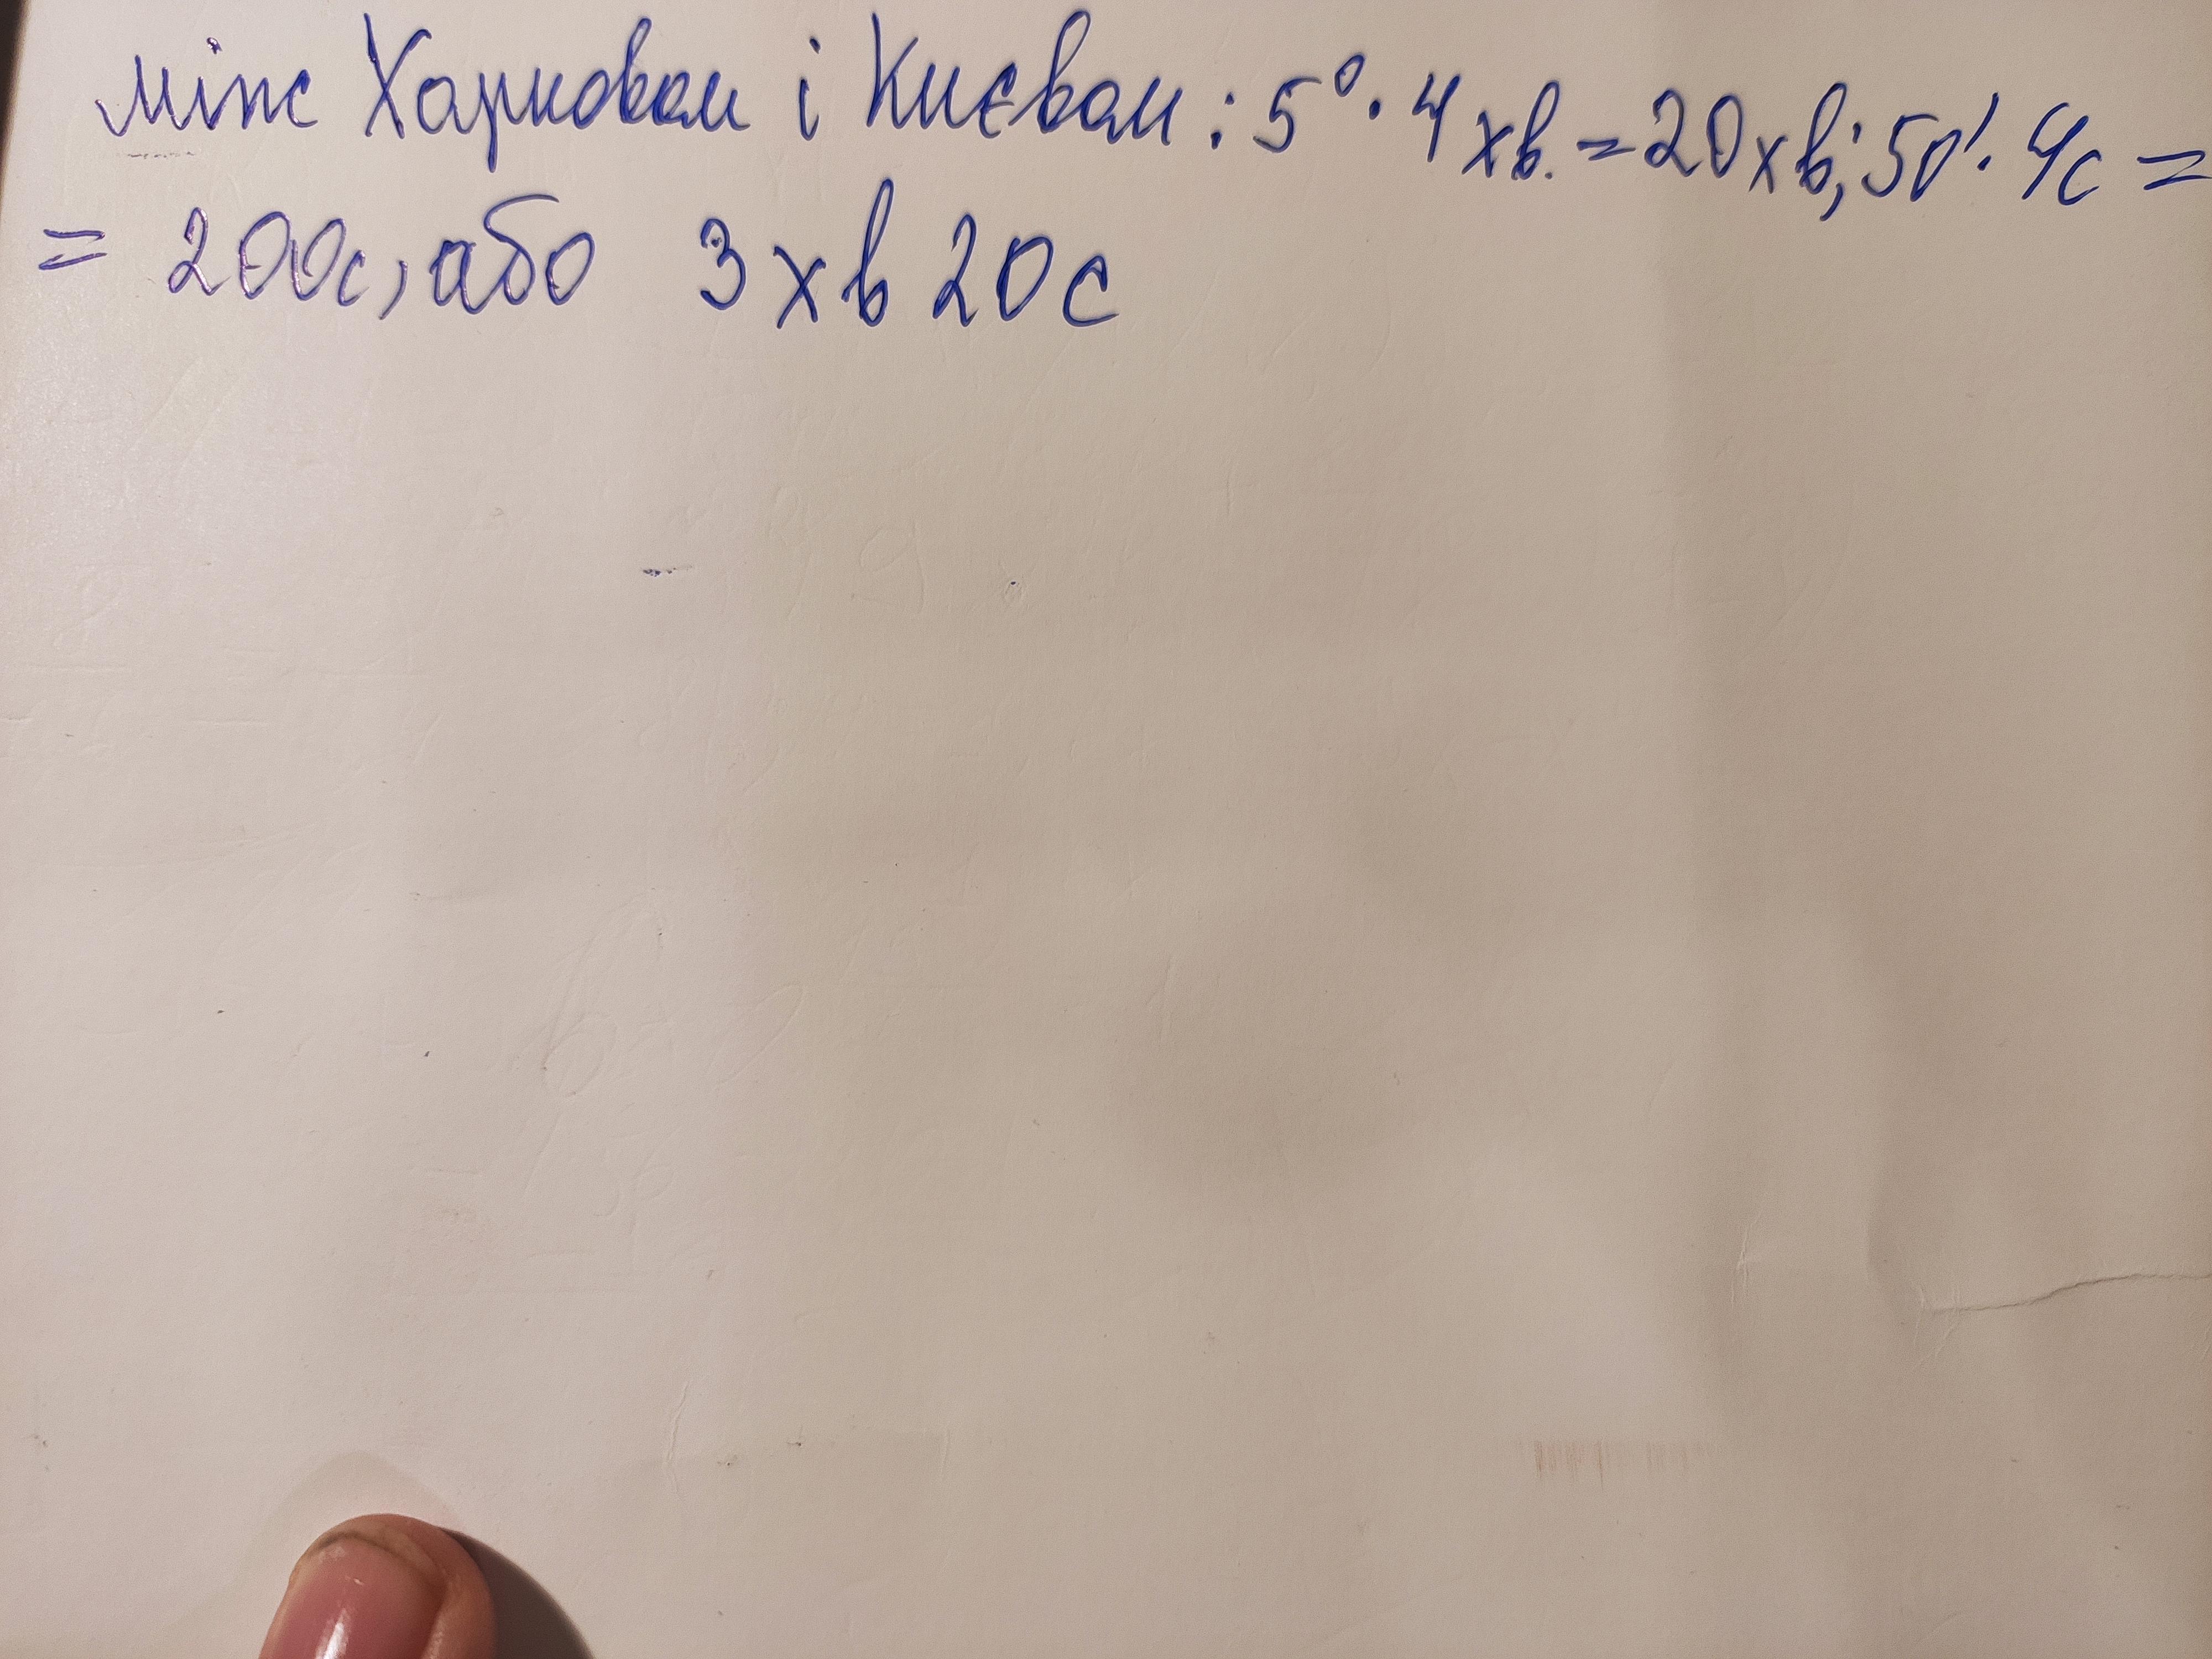 між Харковом і Києвом: 5°· 4 хв. = 20 хв; 50'· 4с =
= 200с, або 3 хв 20 с